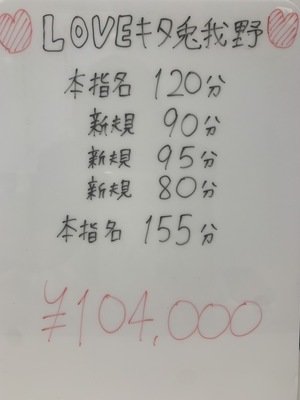 LOVEキタ兎我野
本指名 120分
新規 90分
新規 95分
新規 80分
本指名 155分
¥104,000